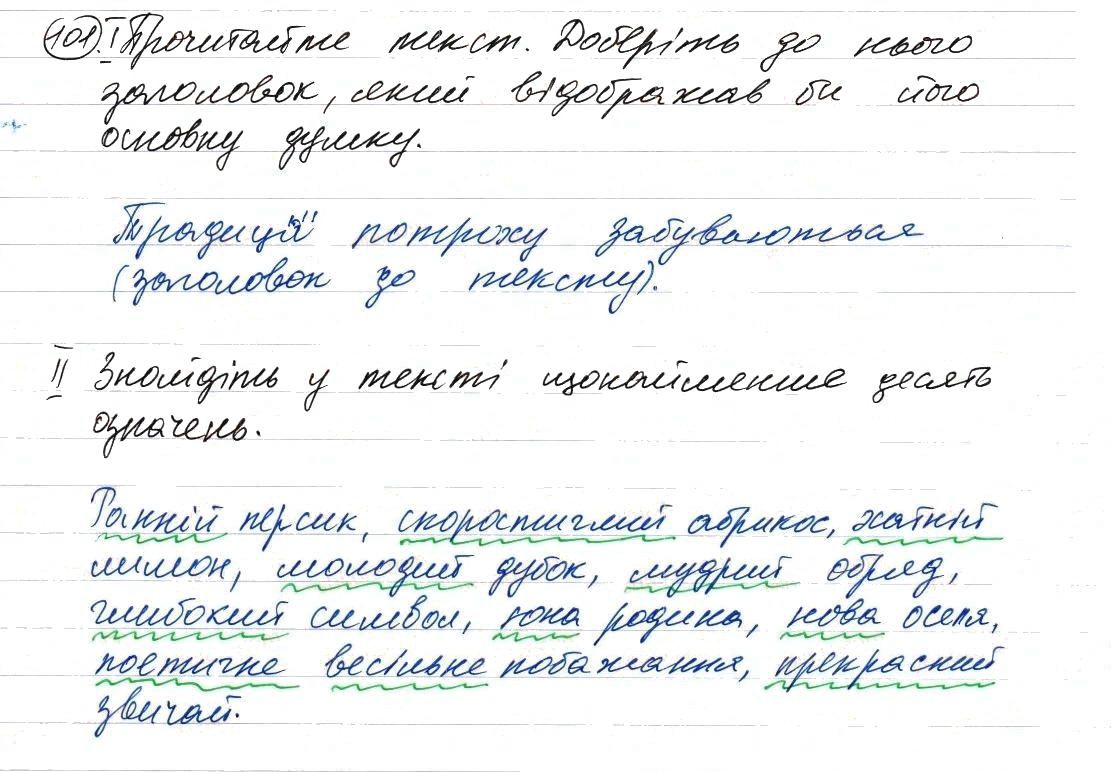 101. I Прочитайте текст. Доберіть до нього
заголовок, який відображав би його
основну думку.
Традиції потроху забуваються
(заголовок до тексту).
II Знайдіть у тексті щонайменше десять
означень.
Ранній персик, скоростиглий абрикос, хатній
лимон, молодий дубок, мудрий обряд,
глибокий символ, юна родина, нова оселя,
поетичне весільне побажання, прекрасний
звичай.